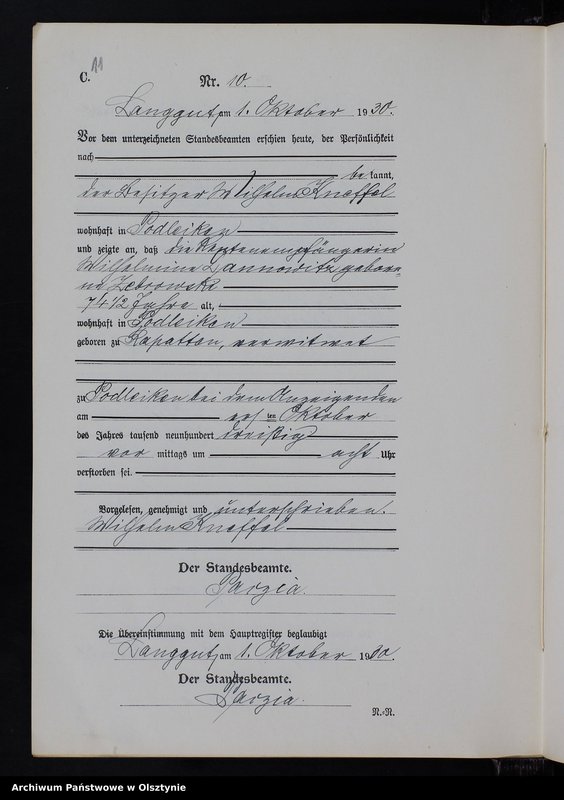 11
C.
Nr. 10.
Langgut, am 1. Oktober 1930.
Vor dem unterzeichneten Standesbeamten erschien heute, der Persönlichkeit
nach
be kannt,
der Besitzer Wilhelm Knaffel
wohnhaft in Podleiken
und zeigte an, daß die Rentenempfängerin
Wilhelmine Dannowitz, gebore-
ne Zebrowski
74 1/2 Jahre alt,
wohnhaft in Podleiken
geboren zu Rapatten, verwitwet
zu Podleiken bei dem Anzeigenden
am ersten Oktober
des Jahres tausend neunhundert dreißig
vor mittags um acht Uhr
verstorben sei.
Vorgelesen, genehmigt und unterschrieben.
Wilhelm Knaffel
Der Standesbeamte.
Die Übereinstimmung mit dem Hauptregister beglaubigt
Langgut, am 1. Oktober 1930.
Der Standesbeamte.
N.-R.
Archiwum Państwowe w Olsztynie